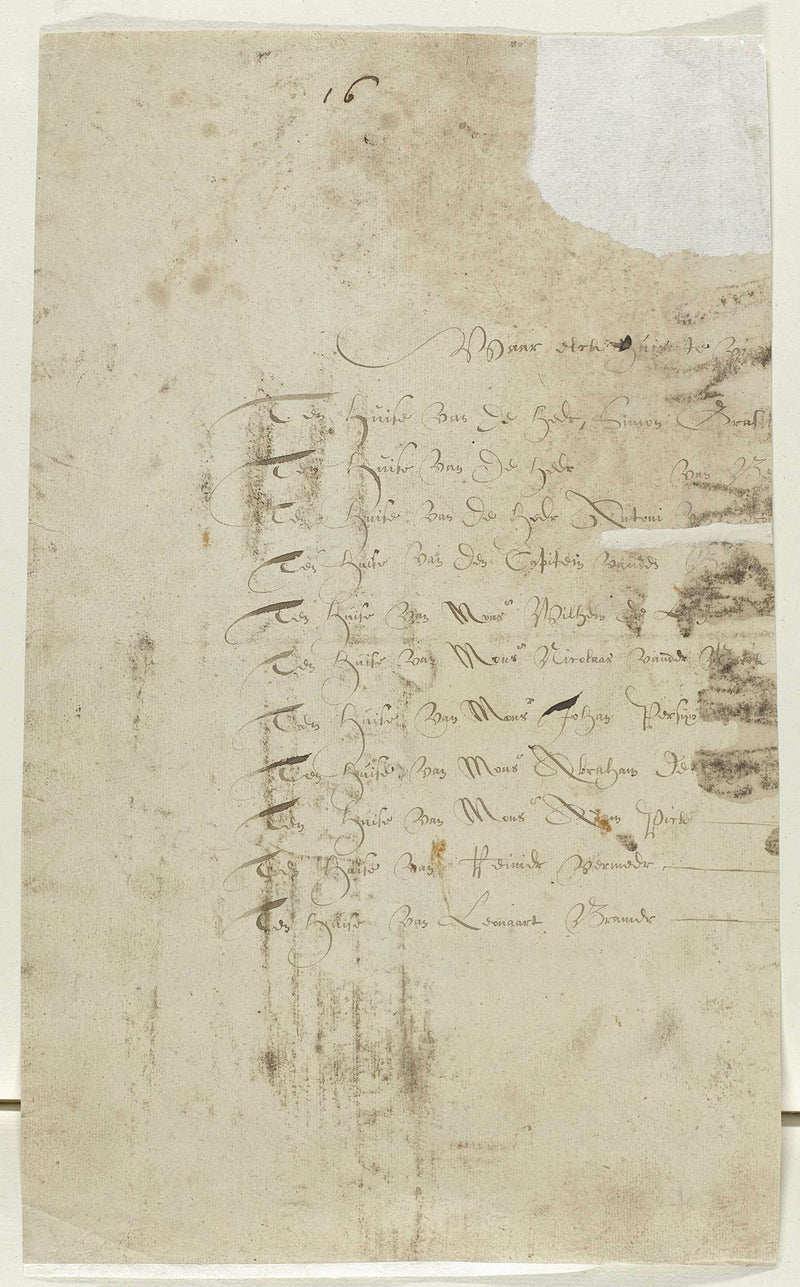 16
Waar elck huis te
Ten Huise van de Heer, Simon
Ten Huise van De Heer van
Ten Huise van De Heer Antoni
Ten Huise van den Capitein vanden
Ten Huise van Monsr Wilhem de
Ten Huise van Monsr Nicolaas vander
Ten Huise van Monsr Johan Persijn
Ten Huise van Monsr Abraham de
Ten Huise van Monsr Adam Pick
Ten Huise van Reinier Vermeer
Ten Huise van Leonaart Bramer